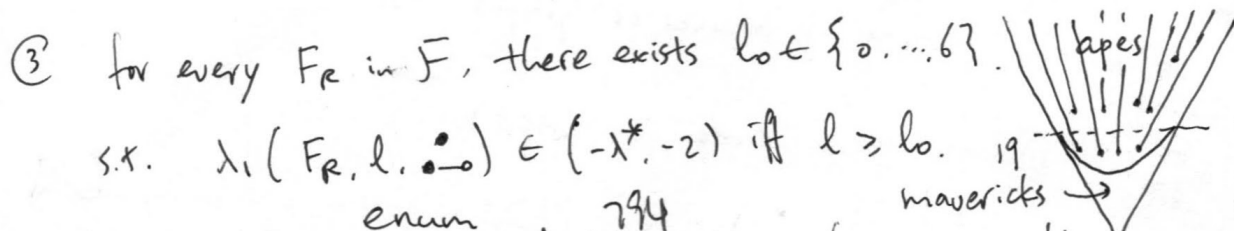 ③ for every F_R in F, there exists l₀ ∈ {0,...,6}.
s.t. λ₁(F_R, l, ) ∈ (-λ*, -2) iff l ≥ l₀.
enum 794
"apes"
19
mavericks →